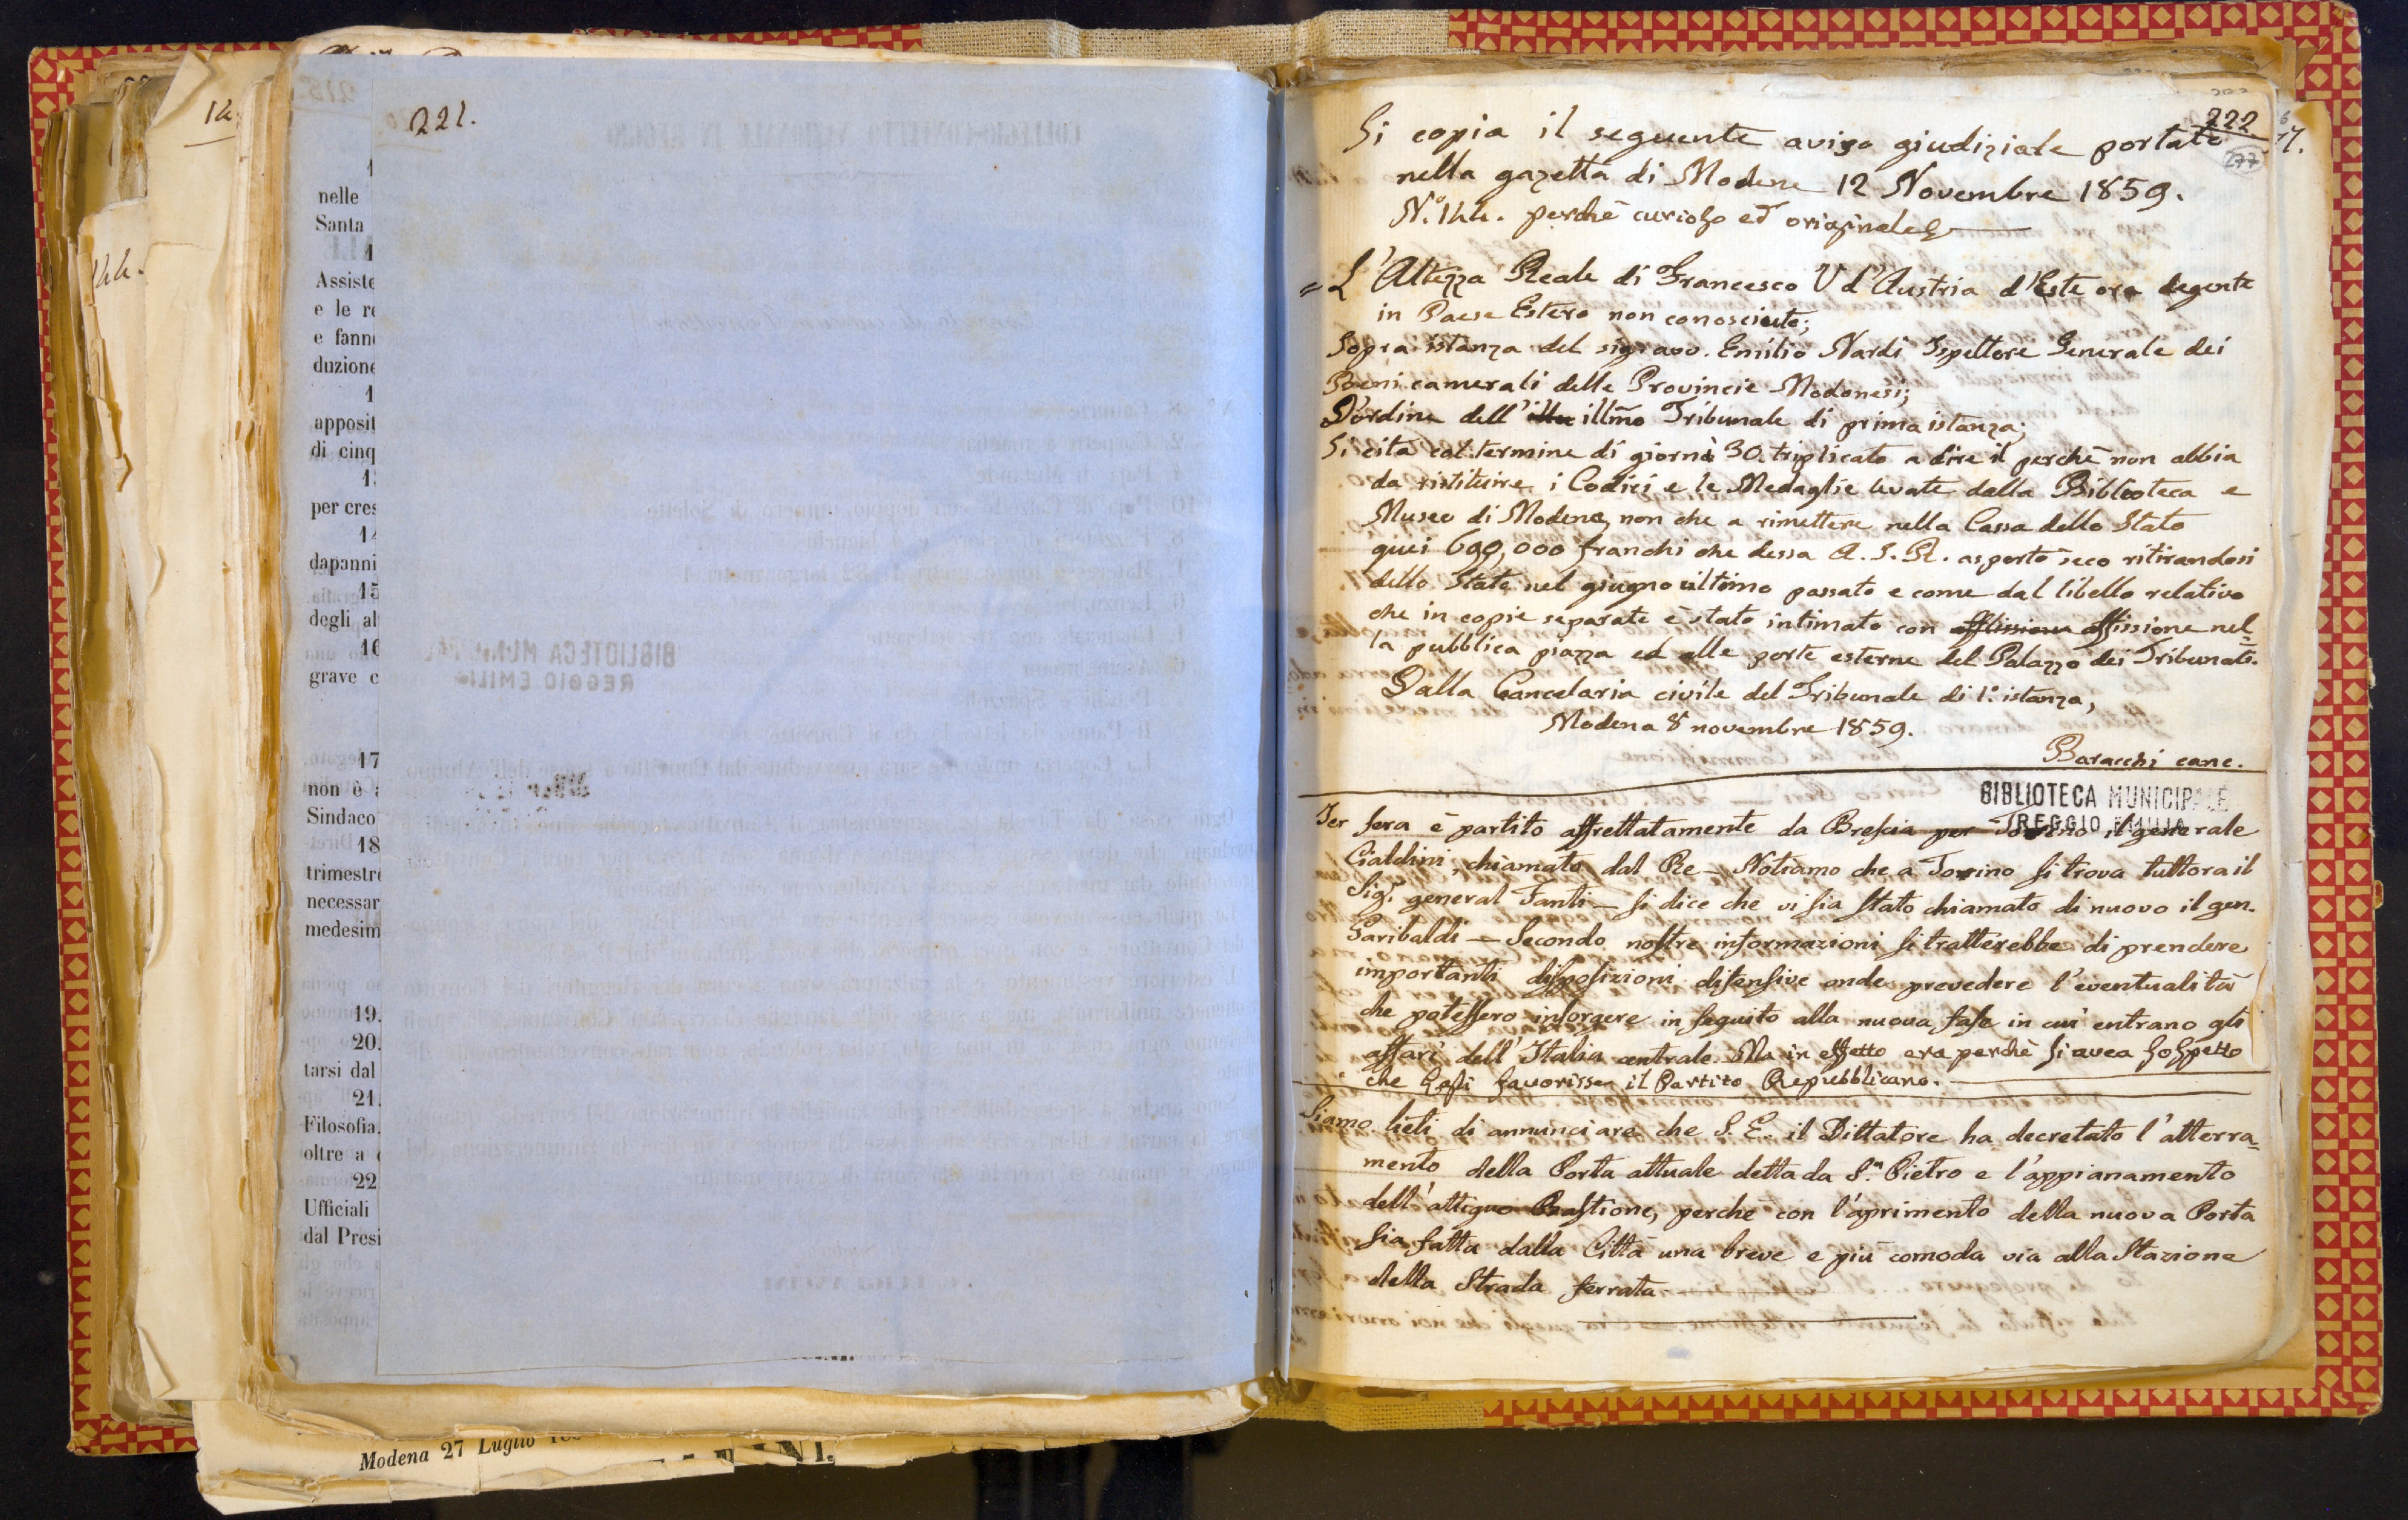 221.
nelle
Santa
Assiste
e le re
e fann
duzione
apposit
di cinq
per cres
14
dapanni
15
degli al
16
grave c
17
non è a
Sindaco
18
trimestre
necessar
medesim
19.
20.
tarsi dal
21.
Filosofia.
oltre a
22
Ufficiali
dal Presi
Modena 27 Luglio
222
277
Si copia il seguente aviso giudiziale portato
nella gazetta di Modena 12 Novembre 1859.
N.° 144. perchè curioso ed originale
= L'Altezza Reale di Francesco V d'Austria d'Este ora degente
in Paese Estero non conosciuto;
Sopra istanza del sig. avv. Emilio Nardi Ispettore Generale dei
Beni camerali delle Provincie Modonesi;
D'ordine dell' illmo Tribunale di prima istanza;
Si cita col termine di giorni 30. triplicato a dire il perchè non abbia
da ristituire i Codici e le Medaglie levate dalla Biblioteca e
Museo di Modena, non che a rimettere nella Cassa dello Stato
quei 690,000 franchi che dessa A. S. R. asportò seco ritirandosi
dello Stato nel giugno ultimo passato e come dal libello relativo
che in copie separate è stato intimato con afflissione affissione nel=
la pubblica piazza ed alle porte esterne del Palazzo dei Tribunali.
Dalla Cancelaria civile del Tribunale di 1.a istanza,
Modena 8 novembre 1859.
Baracchi canc.
BIBLIOTECA MUNICIPALE
REGGIO EMILIA
Jer sera è partito affrettatamente da Brescia per Torino il generale
Cialdini, chiamato dal Re — Notiamo che a Torino si trova tuttora il
Sig.r general Fanti — si dice che vi sia stato chiamato di nuovo il gen.
Garibaldi — Secondo nostre informazioni si tratterebbe di prendere
importanti disposizioni difensive onde prevedere l'eventualità
che potessero insorgere in seguito alla nuova fase in cui entrano gli
affari dell'Italia centrale. Ma in effetto era perchè si avea sospetto
che Essi favorisse il Partito Repubblicano.
Siamo lieti di annunciare che S. E. il Dittatore ha decretato l'atterra=
mento della Porta attuale detta da S.n Pietro e l'appianamento
dell'attiguo Bastione, perchè con l'aprimento della nuova Porta
sia fatta dalla Città una breve e più comoda via alla Stazione
della Strada ferrata.